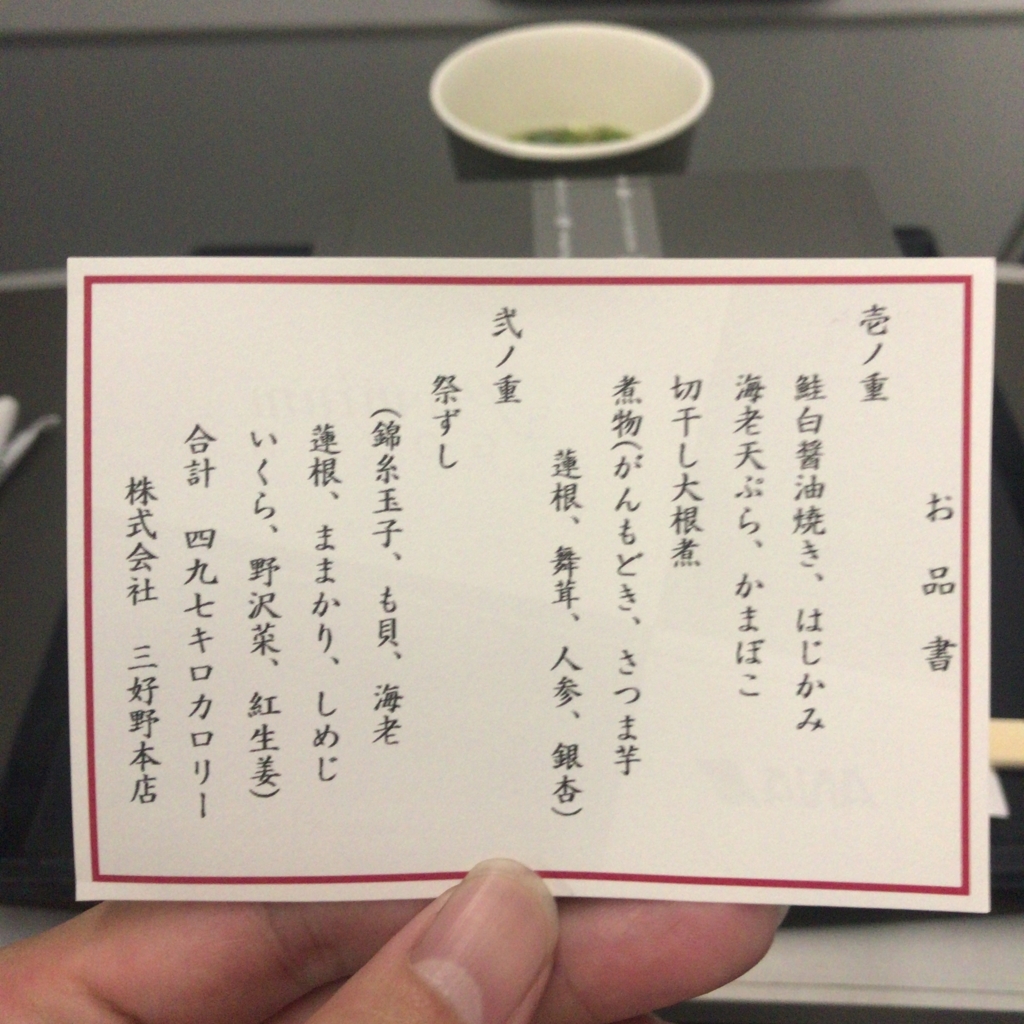 お品書
壱ノ重
鮭白醤油焼き、はじかみ
海老天ぷら、かまぼこ
切干し大根煮
煮物(がんもどき、さつま芋
蓮根、舞茸、人参、銀杏)
弐ノ重
祭ずし
(錦糸玉子、も貝、海老
蓮根、ままかり、しめじ
いくら、野沢菜、紅生姜)
合計 四九七キロカロリー
株式会社 三好野本店